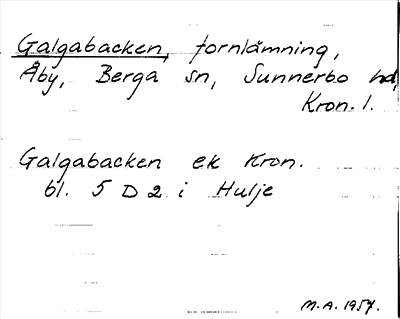 Galgabacken, fornlämning,
Åby, Berga sn, Sunnerbo hd,
Kron. l.
Galgabacken ek Kron.
bl. 5 D 2 i Hulje
M.A. 1957.